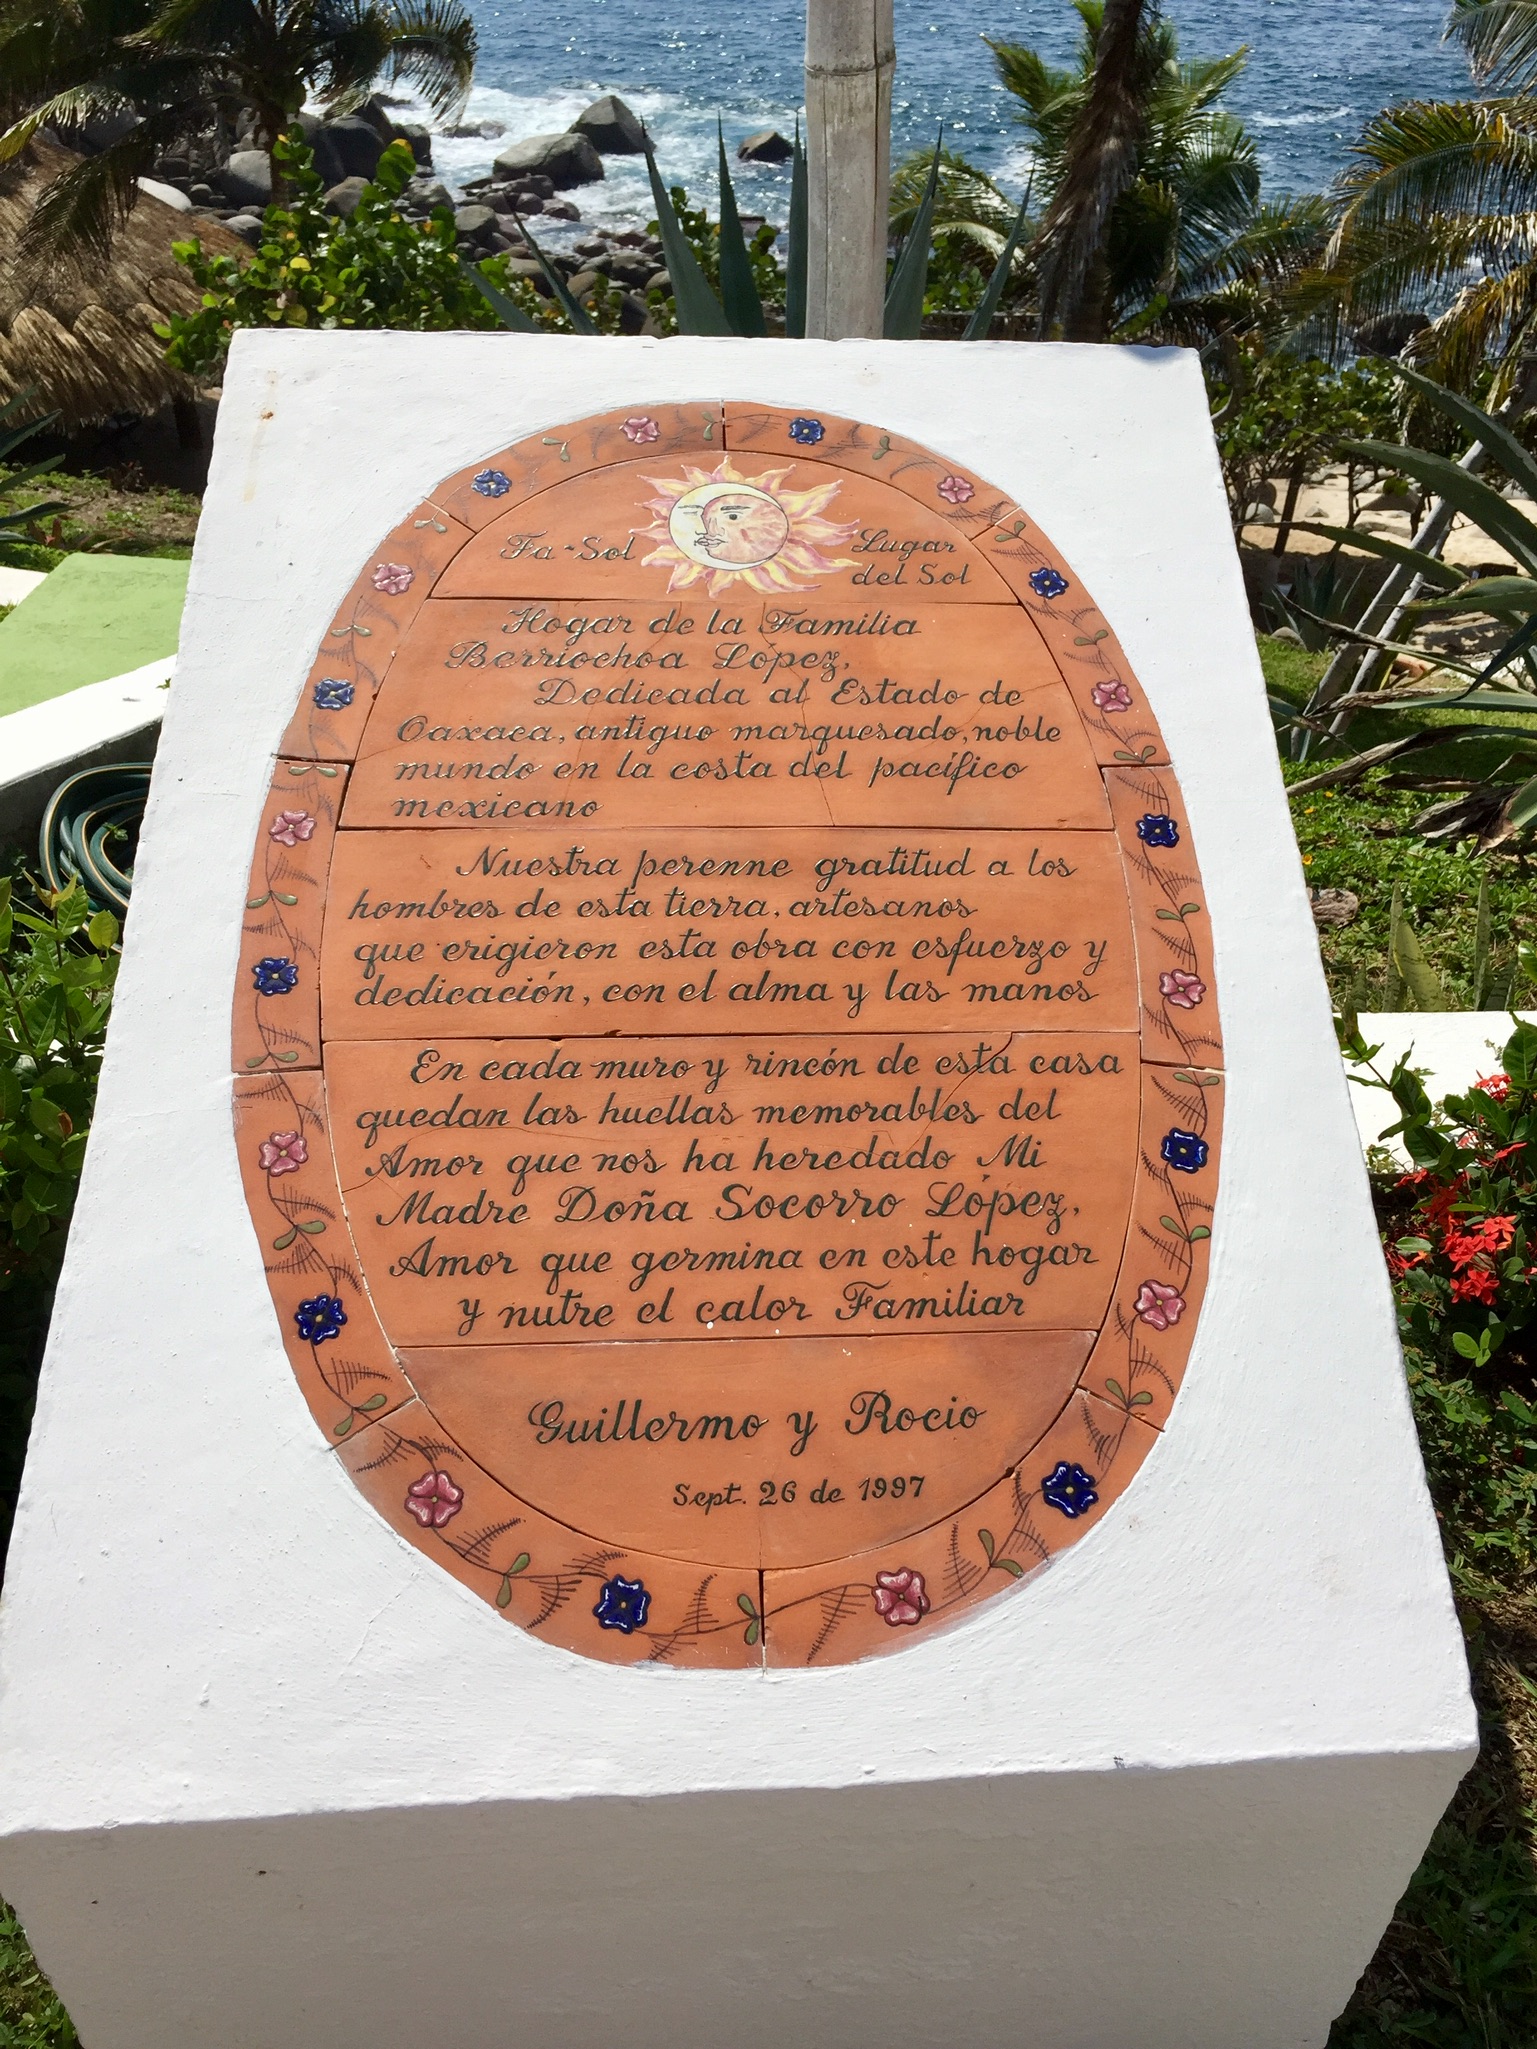 Fa-Sol
Lugar
del Sol
Hogar de la Familia
Berriochoa López,
Dedicada al Estado de
Oaxaca, antiguo marquesado, noble
mundo en la costa del pacífico
mexicano
Nuestra perenne gratitud a los
hombres de esta tierra, artesanos
que erigieron esta obra con esfuerzo y
dedicación, con el alma y las manos
En cada muro y rincón de esta casa
quedan las huellas memorables del
Amor que nos ha heredado Mi
Madre Doña Socorro López,
Amor que germina en este hogar
y nutre el calor Familiar
Guillermo y Rocio
Sept. 26 de 1997